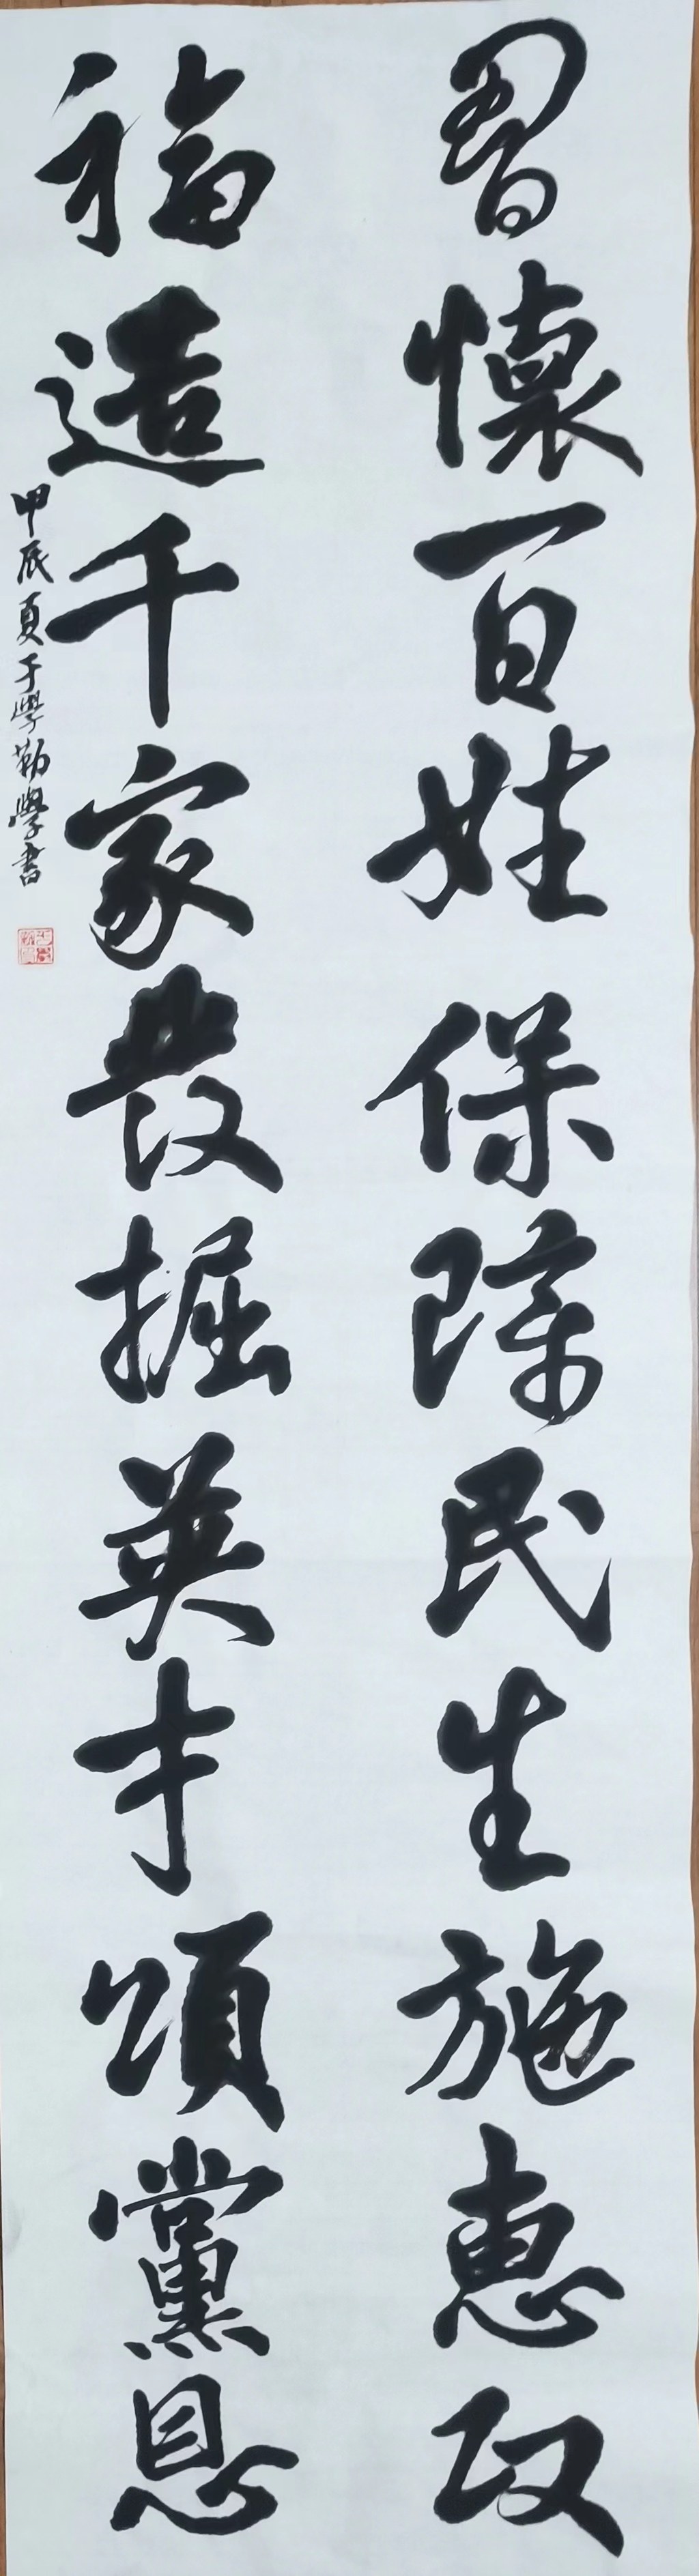 胷懷百姓保障民生施惠政
福造千家發掘英才頌黨恩
甲辰夏于學勤學書